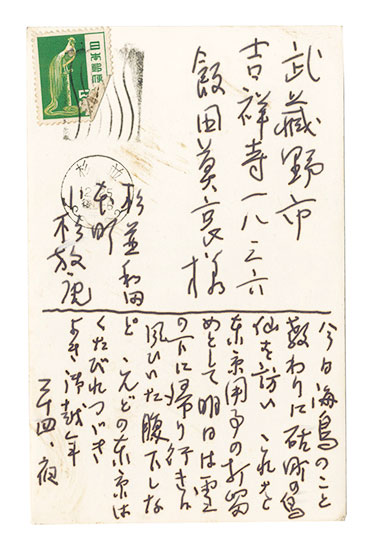 日本郵便
武藏野市
吉祥寺一八三六
飯田莫哀様
杉並
杉並和田
本町
小杉放庵
今日海鳥のこと
教わりに砧町の鳥
仙を訪い これを
東京用事の打留
めとして明日は雪
の下に帰り行き
風ひいた腹下しな
ど こんどの東京は
くたびれつづき
よき御越年
二十四 夜